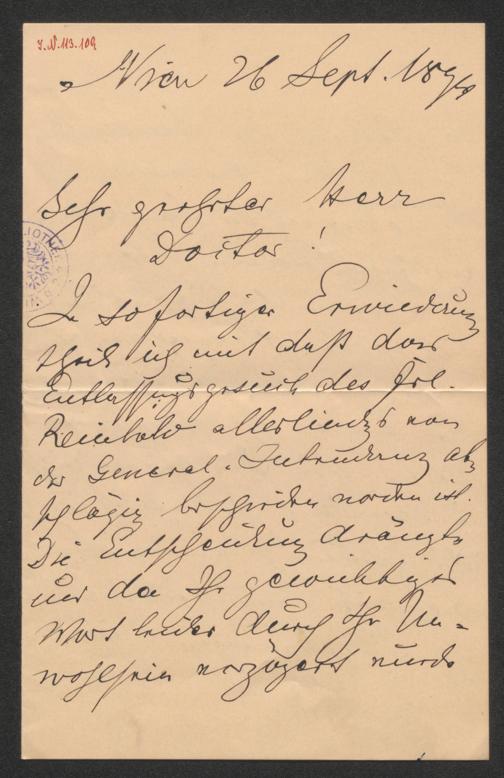 I.N. 113.109
Wien 26 Sept. 189
Sehr geehrter Herr
Doctor!
In sofortiger Erwiederung
theile ich mit daß das
Entlassungsgesuch des Frl.
Reinhold allerdings von
der General-Intendanz ab-
schlägig beschieden worden ist.
Die Entscheidung drängte
und da Ihr gewichtiges
Wort leider durch Ihr Un=
wohlsein verzögert wurde